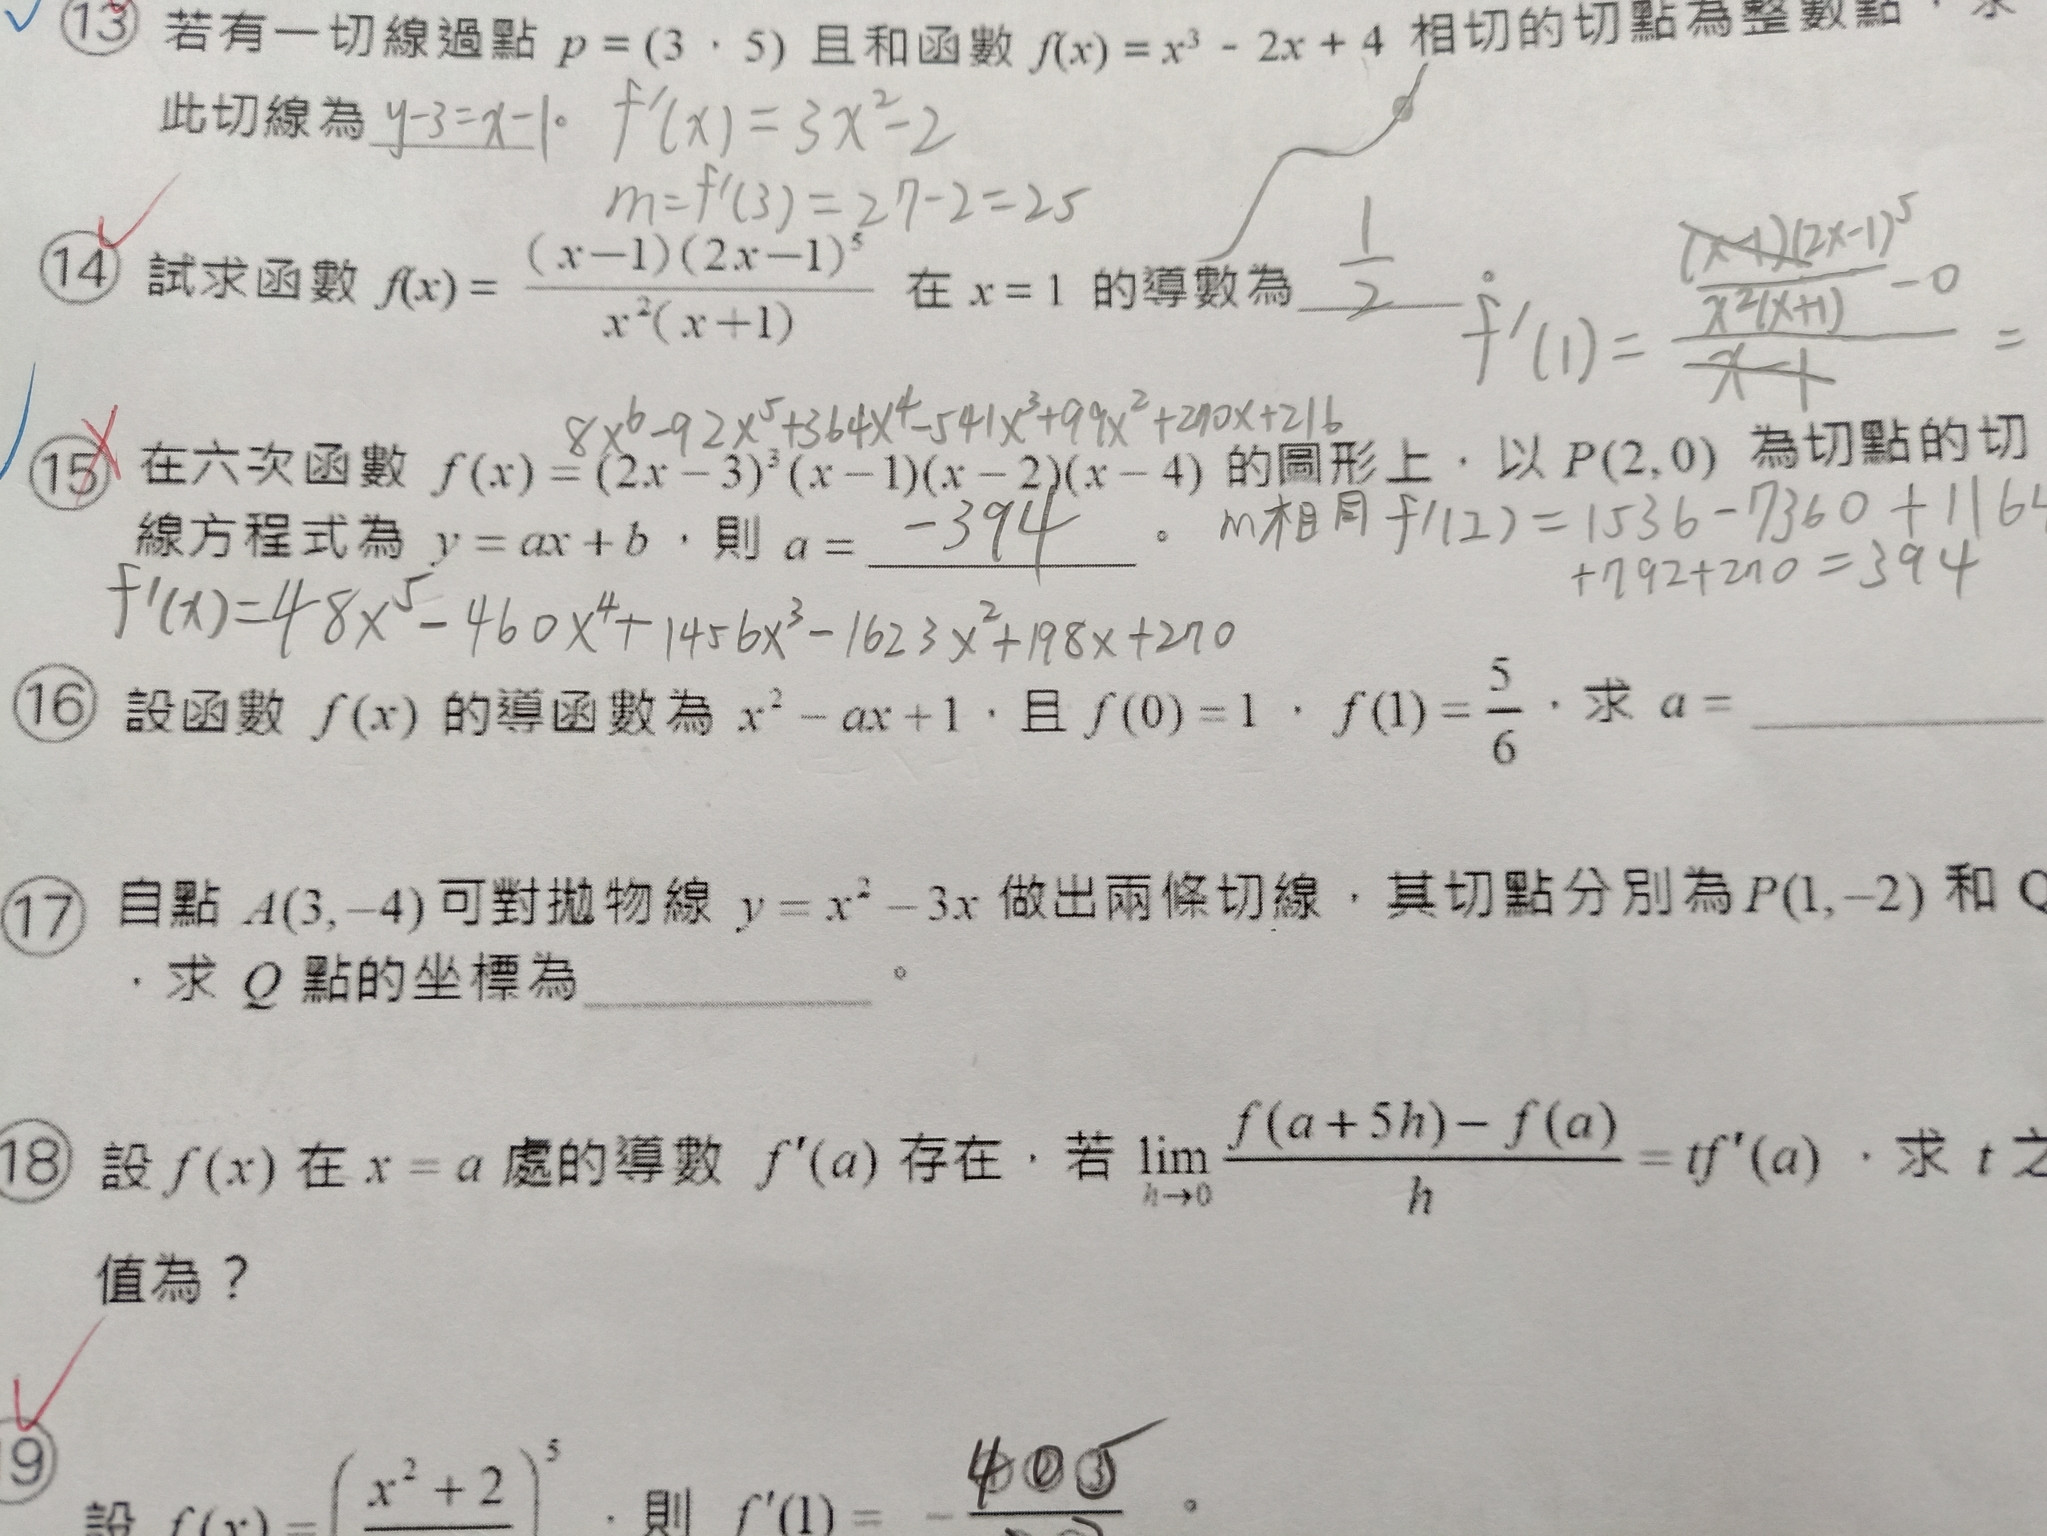 ⑬ 若有一切線過點 p = (3，5) 且和函數 f(x) = x³ - 2x + 4 相切的切點為整數點，求
此切線為 y-3=x-1。 f'(x) = 3x²-2
m=f'(3)=27-2=25
⑭ 試求函數 f(x) = (x-1)(2x-1)⁵ / x²(x+1) 在 x = 1 的導數為 1/2 。
f'(1) = ((x-1)(2x-1)⁵ / x²(x+1) - 0) / (x-1) =
8x⁶-92x⁵+364x⁴-541x³+99x²+270x+216
⑮ 在六次函數 f(x) = (2x-3)³(x-1)(x-2)(x-4) 的圖形上，以 P(2,0) 為切點的切
線方程式為 y = ax + b，則 a = -394 。 m相同 f'(2)=1536-7360+1164
+792+270=394
f'(x)=48x⁵-460x⁴+1456x³-1623x²+198x+270
⑯ 設函數 f(x) 的導函數為 x² - ax + 1，且 f(0) = 1，f(1) = 5/6，求 a =
⑰ 自點 A(3,-4) 可對拋物線 y = x² - 3x 做出兩條切線，其切點分別為 P(1,-2) 和 Q
，求 Q 點的坐標為 。
⑱ 設 f(x) 在 x = a 處的導數 f'(a) 存在，若 lim h→0 (f(a+5h) - f(a)) / h = tf'(a)，求 t 之
值為？
⑲ 設 f(x) = (x² + 2 )⁵，則 f'(1) = - 405 。